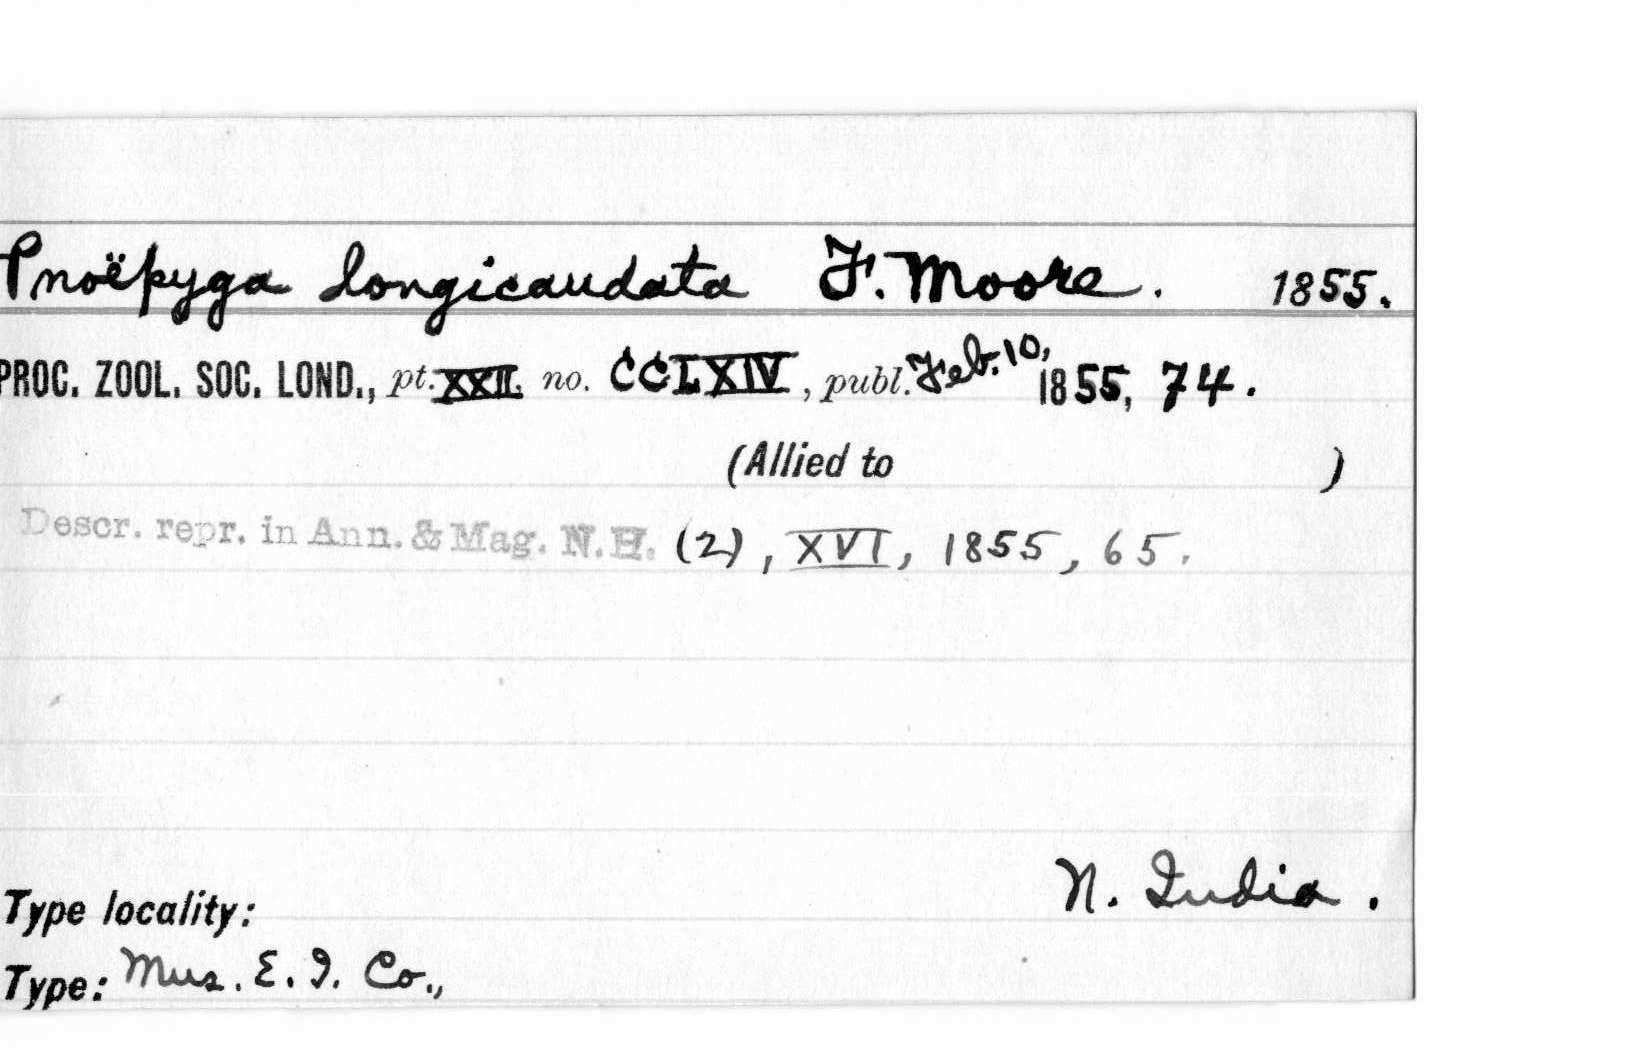 Pnoëpyga longicaudata F. Moore. 1855.
PROC. ZOOL. SOC. LOND., pt. XXII. no. CCLXIV, publ. Feb. 10, 1855, 74.
(Allied to )
Descr. repr. in Ann. & Mag. N.H. (2), XVI, 1855, 65.
N. India.
Type locality:
Type: Mus. E. I. Co.,